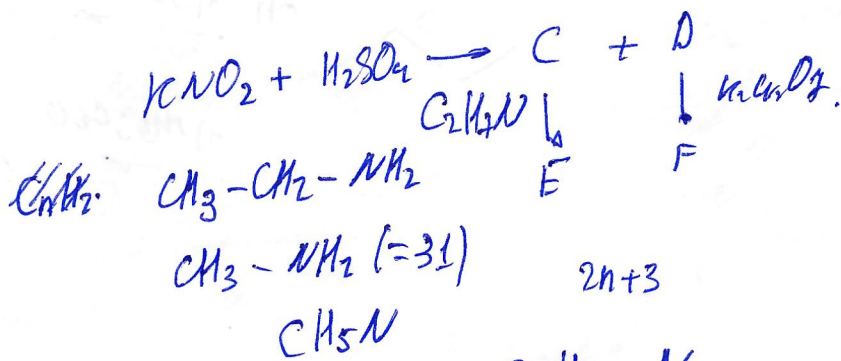 KNO₂ + H₂SO₄ → C + D
C₂H₇N ↓ ↓ K₂Cr₂O₇.
E F
CH₃-CH₂-NH₂
CH₃-NH₂ (=31)
2n+3
CH₅N